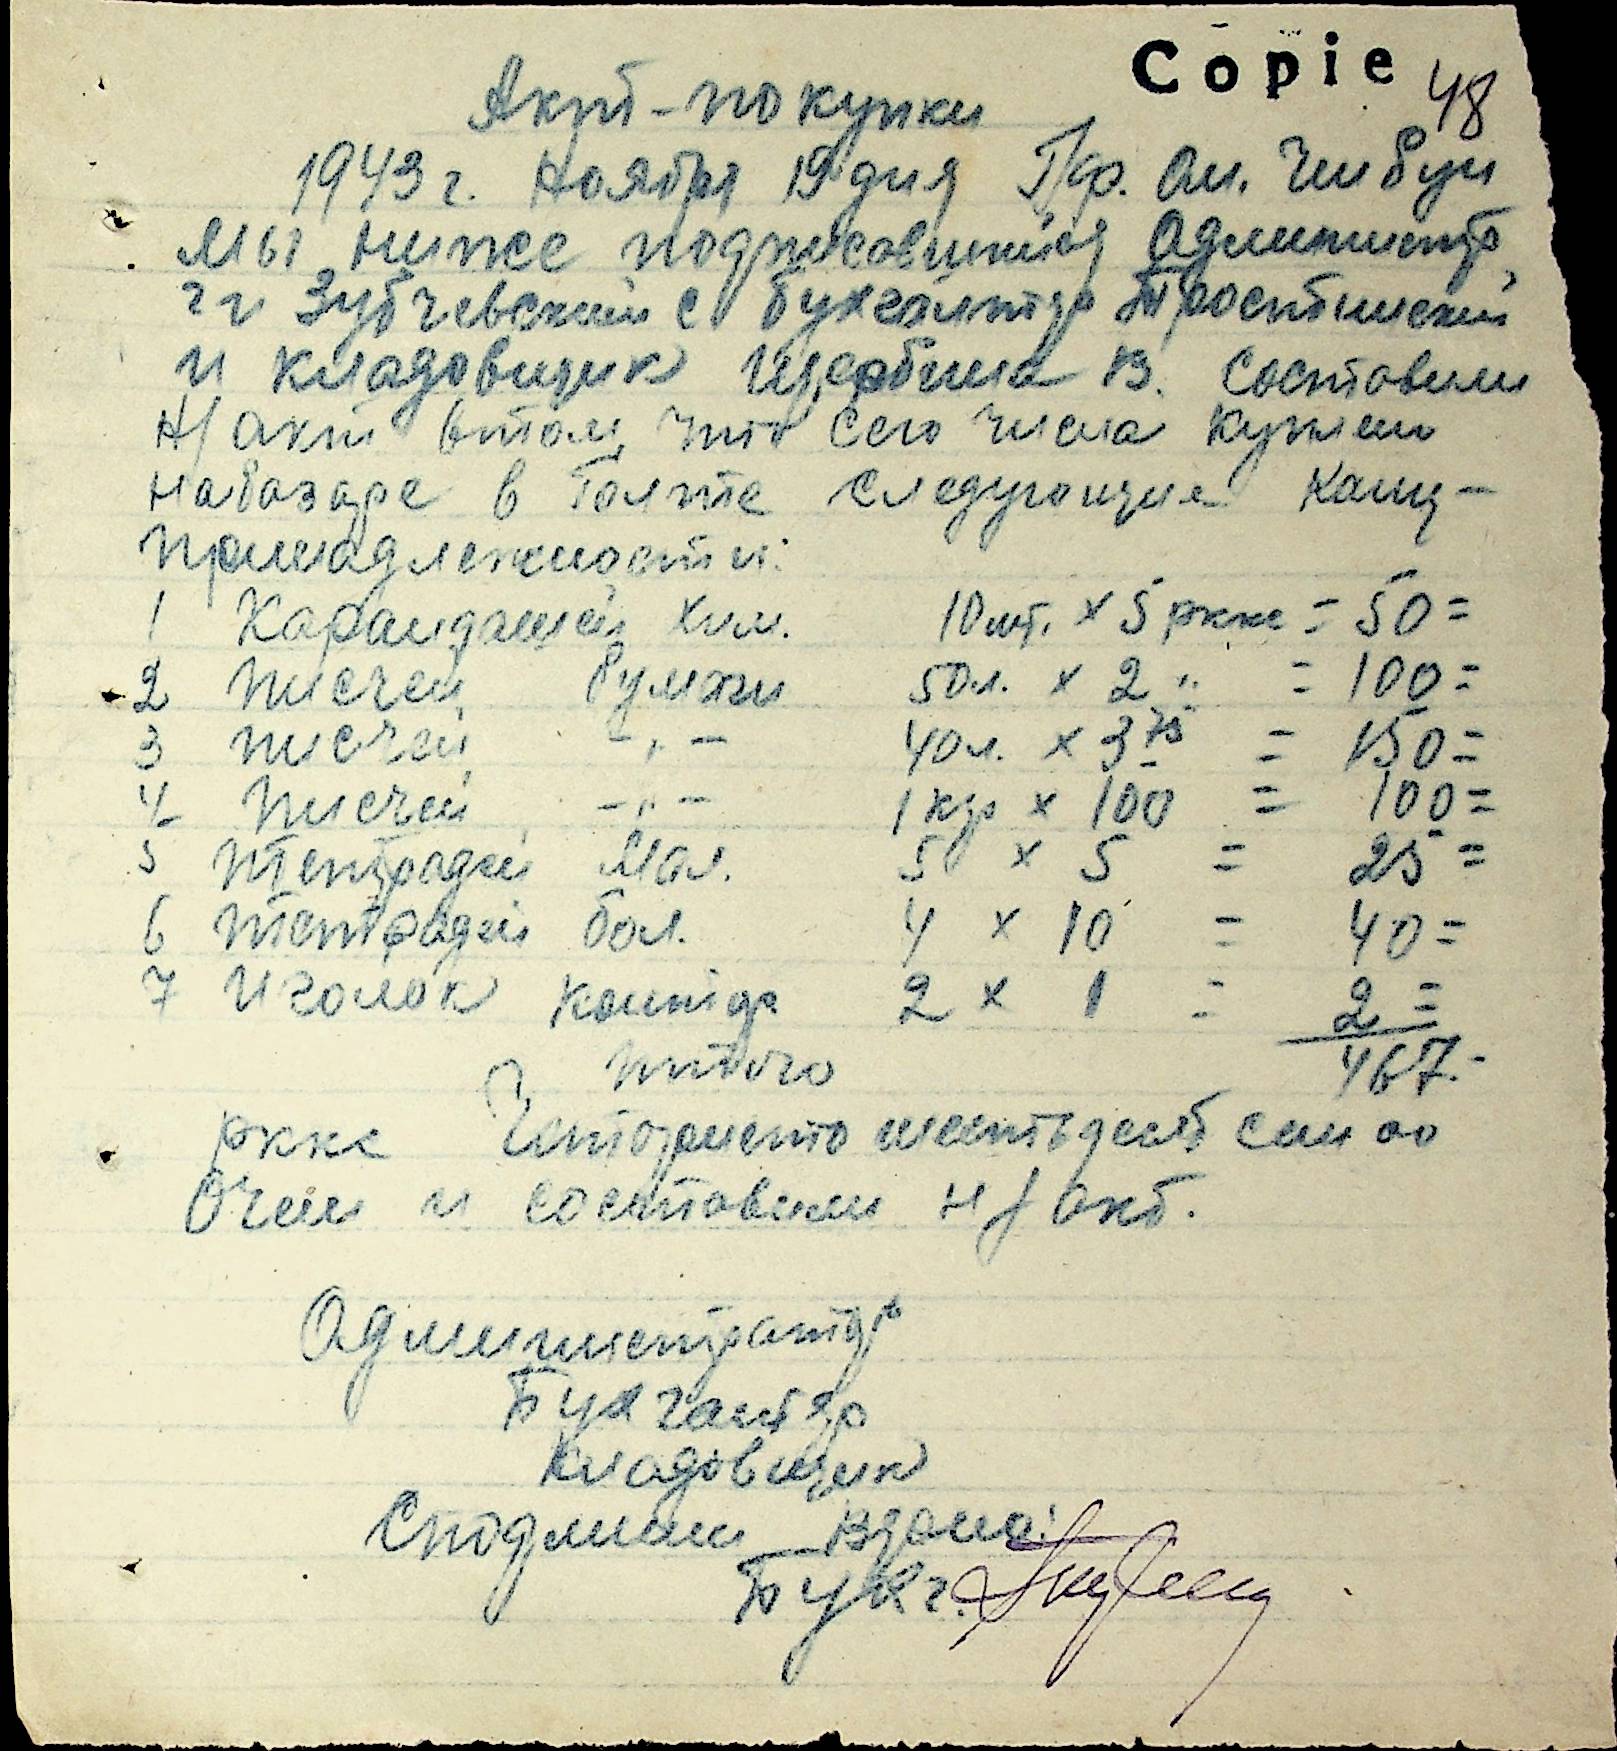 Copie 48
Акт-покупки
1943 г. Ноября 19 дня Гр. Ол. Чибуи
мы ниже подписовшийся Администр,
гг Зубчевский с бухгалтер Тростинский
и кладовщик Щербина В. составили
н/ акт втом что сего числа куплено
на базаре в Голте следующие канц-
принадлежности:
1 Карандашей хим. 10 шт. х 5 ркке = 50=
2 писчей бумаги 50л. х 2 " = 100=
3 писчей -"- 40л. х 3 75 = 150=
4 писчей -"- 1 кгр х 100 = 100=
5 тетрадей мал. 5 х 5 = 25=
6 тетрадей бол. 4 х 10 = 40=
7 Иголок 2 х 1 = 2=
итого 467.-
ркке Четыреста шестьдесят семь оо
О чем и составили н/ акт.
Администратор
Бухгалтер
Кладовщик
С подлинным верно:
Бухг.